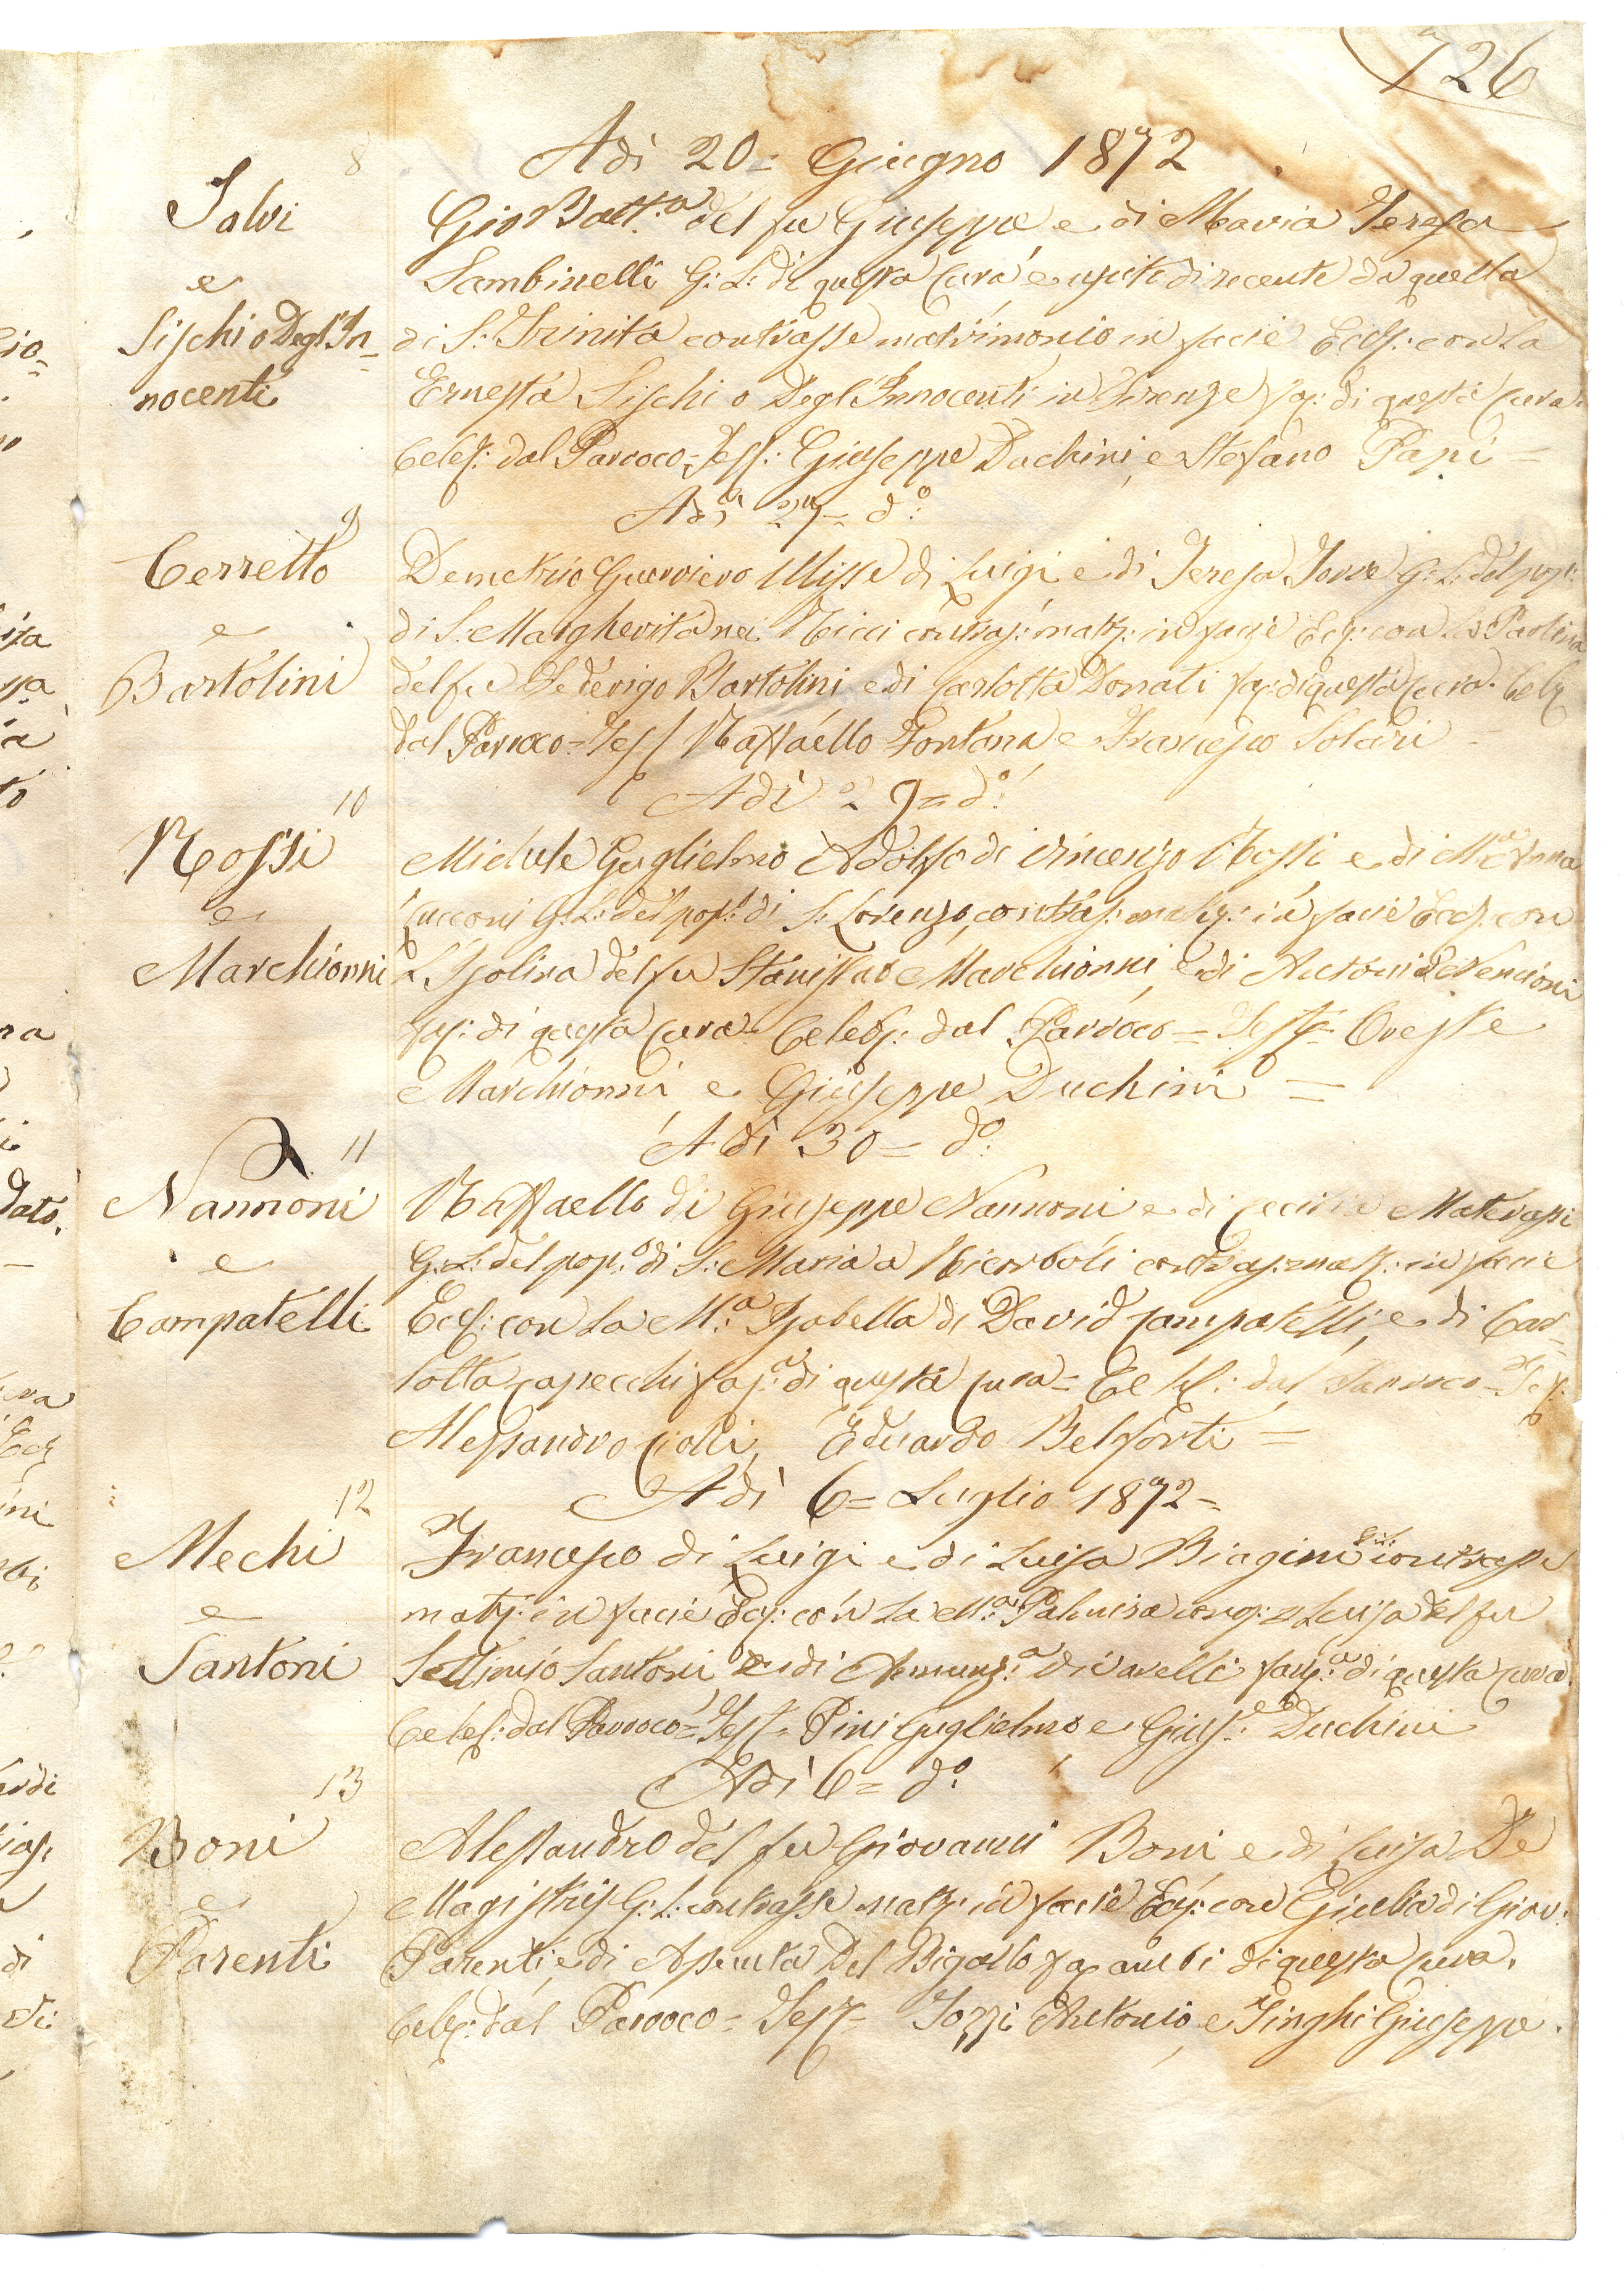 726
8
Adì 20= Giugno 1872
Salvi
e
Sischi o Degl'In=
nocenti
Gio Batt.a del fu Giuseppe e di Maria Teresa
Sambinelli G: L: di questa Cura e usciti di recente da quella
di S: Trinita contrasse matrimonio in facie Eccl: con La
Ernesta Sischi o Degl'Innocenti in Firenze fag: di questa Cura.
Celeb: dal Parroco= Tess: Giuseppe Duchini, e Stefano Papi=
Adì 27= d.o:
9
Cerretto
e
Bartolini
Demetrio Guerriero Ulisse di Luigi e di Teresa Torre G: L: del pop:
di S: Margherita nei Ricci contras: matr: in facie Ecc: con La Paolina
del fu Federigo Bartolini e di Carlotta Donati fag: di questa Cura. Celeb
dal Parroco= Tess Raffaello Fontana e Francesco Solari=
Adì 29= d.o:
10
Rossi
e
Marchionni
Michele Guglielmo Adolfo di Vincenzo Rossi e di M.a Anna
Cucconi G: L: del pop.o di S: Lorenzo, contras: matr: in facie Eccl: con
L'Isolina del fu Stanislao Marchionni, e di Antonia Nencioni
fag: di questa Cura= Celeb: dal Parroco= Tess= Oreste
Marchionni e Giuseppe Duchini=
Adì 30= d.o:
11
Nannoni
e
Campatelli
Raffaello di Giuseppe Nannoni e di Cecilia Materassi
G: L: del pop.o di S: Maria a Ricorboli contras: matr: in facie
Eccl: con La M.a Isabella di David Campatelli, e di Car=
lotta Capecchi fag.a di questa Cura= Celeb: dal Parroco= Tess:
Alessandro Ciolli, Eduardo Belforti=
Adì 6= Luglio 1872=
12
Mechi
e
Santoni
Francesco di Luigi e di Luisa Biagini G:L: contrasse
matr: in facie Ecc: con La M.a Palmira cong: Luisa del fu
Settimio Santoni e di Annunz.a Divarelli fag.a di questa Cura.
Celeb: dal Parroco= Tess= Pini Guglielmo e Gius.e Duchini
Adì 6= d.o:
13
Boni
e
Parenti
Alessandro del fu Giovanni Boni, e di Luisa De
Magistris G: L: contrasse matr: in facie Ecc: con Giulia di Giov:
Parenti, e di Assunta Del Bigallo fag ambi di questa Cura.
Celeb: dal Parroco= Tess= Tozzi Antonio, e Tinghi Giuseppe.